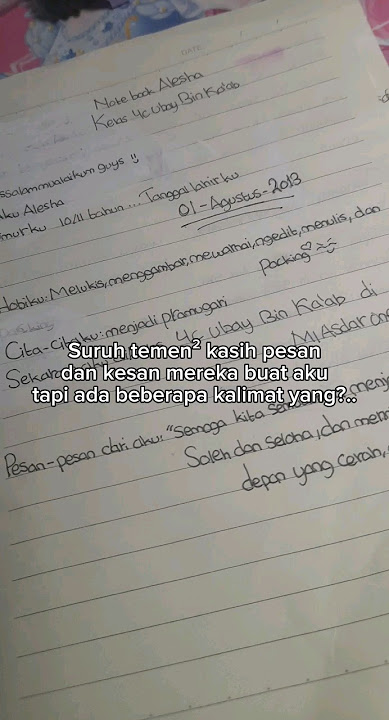 DATE
Note book Alesha
Kelas 4c Ubay Bin Ka'ab
ssalammualaikum guys !!
Aku Alesha
murku 10/11 tahun... Tanggal lahirku
01-Agustus-2013
Hobiku: Melukis, menggambar, mewarnai, ngedit, menulis, dan
packing
Cita-citaku: menjadi pramugari
Sekarang 4c Ubay Bin Ka'ab di
MI Asdar
Suruh temen² kasih pesan
dan kesan mereka buat aku
tapi ada beberapa kalimat yang?..
Pesan-pesan dari aku: "Semoga kita menj
Soleh dan seloha, dan mem
depan yang cerah,